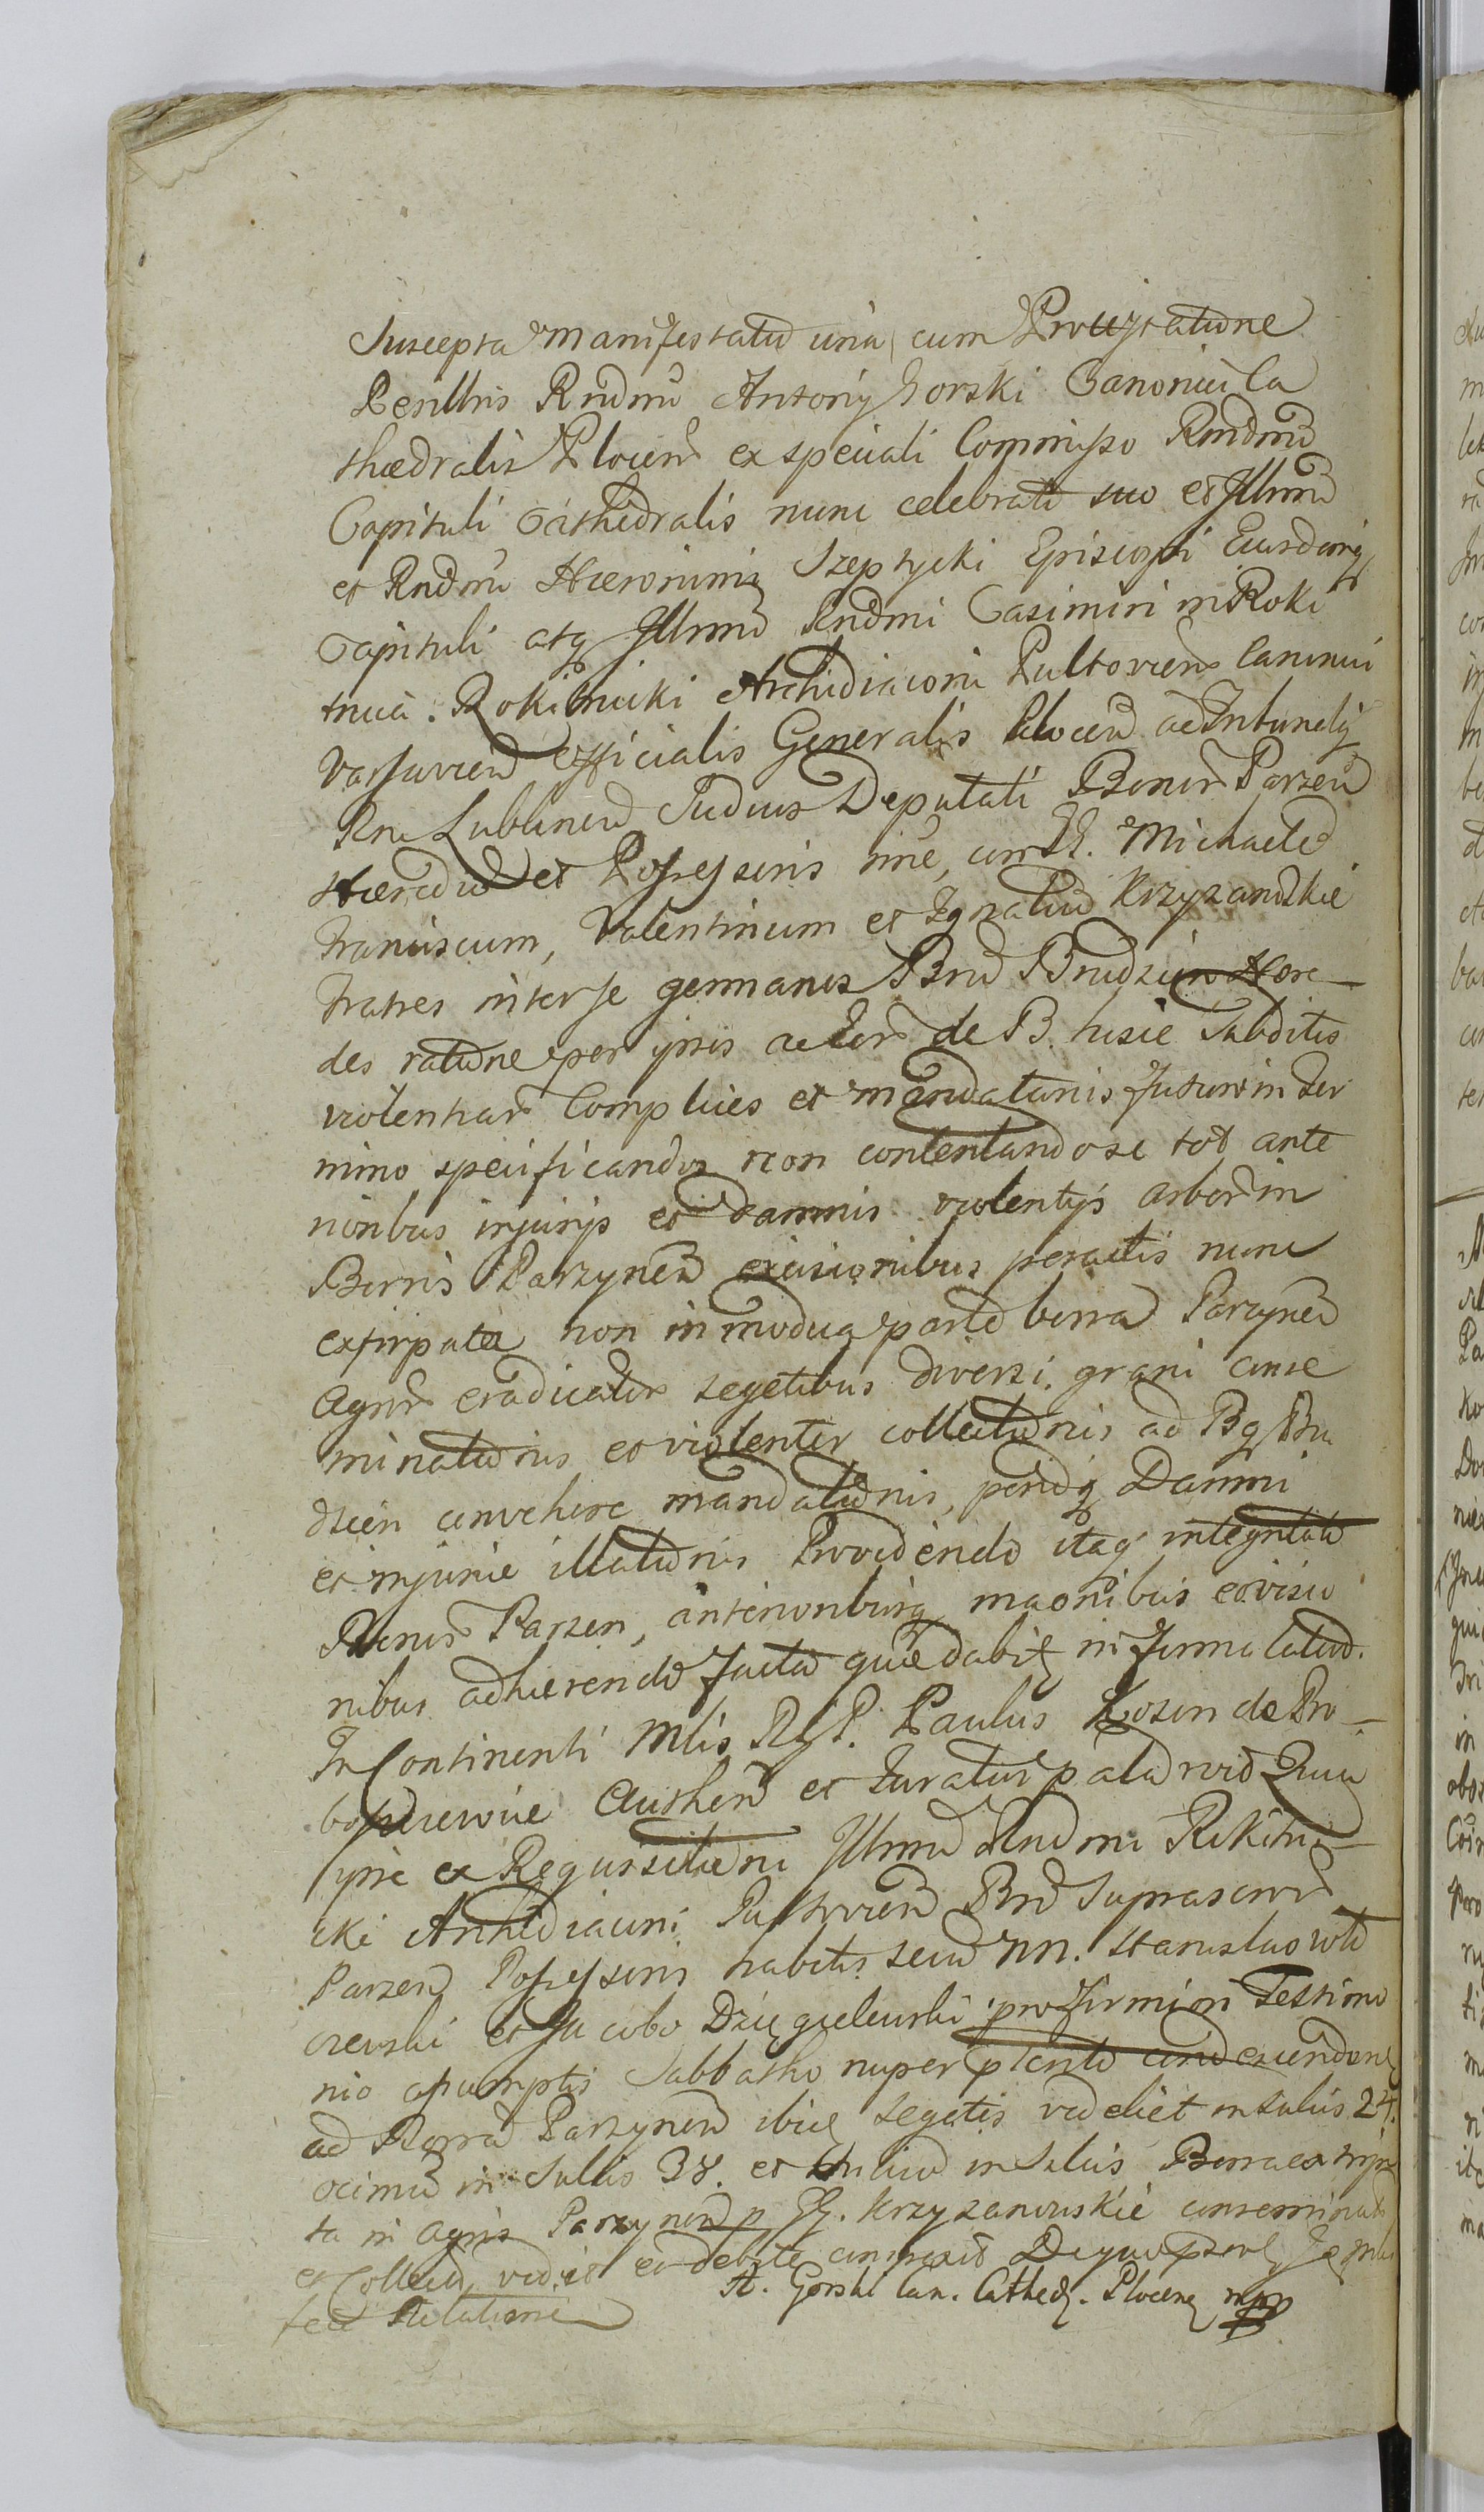 Suscepta Manifestatio una cum Protestatione
Perillris Rndmi Antonij Gorski Canonici Ca
thedralis Plocen ex speciali Commisso Rndmi
Capituli Cathedralis nunc celebrati suo et Illrmi
et Rndmi Hieronimi Szeptycki Episcopi Eiusdemq
Capituli atq Illrmi Rndmi Casimiri in Roki
tnica Rokitnicki Archidiaconi Pultovien Canonici
Varsavien Officialis Generalis Plocen ac Tribunalis
Rni Lublinen Judicis Deputati Bonor Parzen
Hæredis et Possessoris nne, cum GG. Michaele
Franciscum, Valentinum et Ignatium Krzyzanoskie
Fratres inter se germanos Bnr Brudzien Hære
des ratione per ipsos actor de B. husce Subditis
violentiar Complices et mandatariis futuro in Ter
mino specificandos non contentando se tot ante
rioribus injurijs et damnis violentijs arbor in
Borris Parzynen excisionibus peractis nunc
exstirpata non in modica parte borra Parzynen
Agror eradicator segetibus diversi grani conse
minationis et violenter collectionis ad Bq Bru
dzien convehere mandationis, pendq Damni
et injuriæ illationis Providendo itaq integritati
Bonor Parzen, anterioribusq maonibus et visio
nibus adhærendo facta quæ dabitq in Termi latiud.
In Continenti Mlis RgP. Paulus Kosen de Pro
boszczewice Authen et Juratus palam rec Quia
ipse ex Requisitione Illrmi Rndmi Rokitni
cki Archidiaconi Pultovien Bnr Suprascrip
Parzen Possessoris habitis secum NN. Stanislao Wil
czewski et Jacobo Dzięgielewski pro firmiori Testimo
nio assumptis Sabbatho nuper pterito condescendens
ad Borra Parzynen ibiq segetis videlicet in sulcis 24.
ocimum in Sulcis 38. et milium in Sulcis Borra extirpa
ta in agris Parzynen p GG. Krzyzanowskie conseminata
et Collecta vidit et debite conspexit De quo pson
fecit Relationem
A. Gorski Can. Cathedr. Plocens mpp